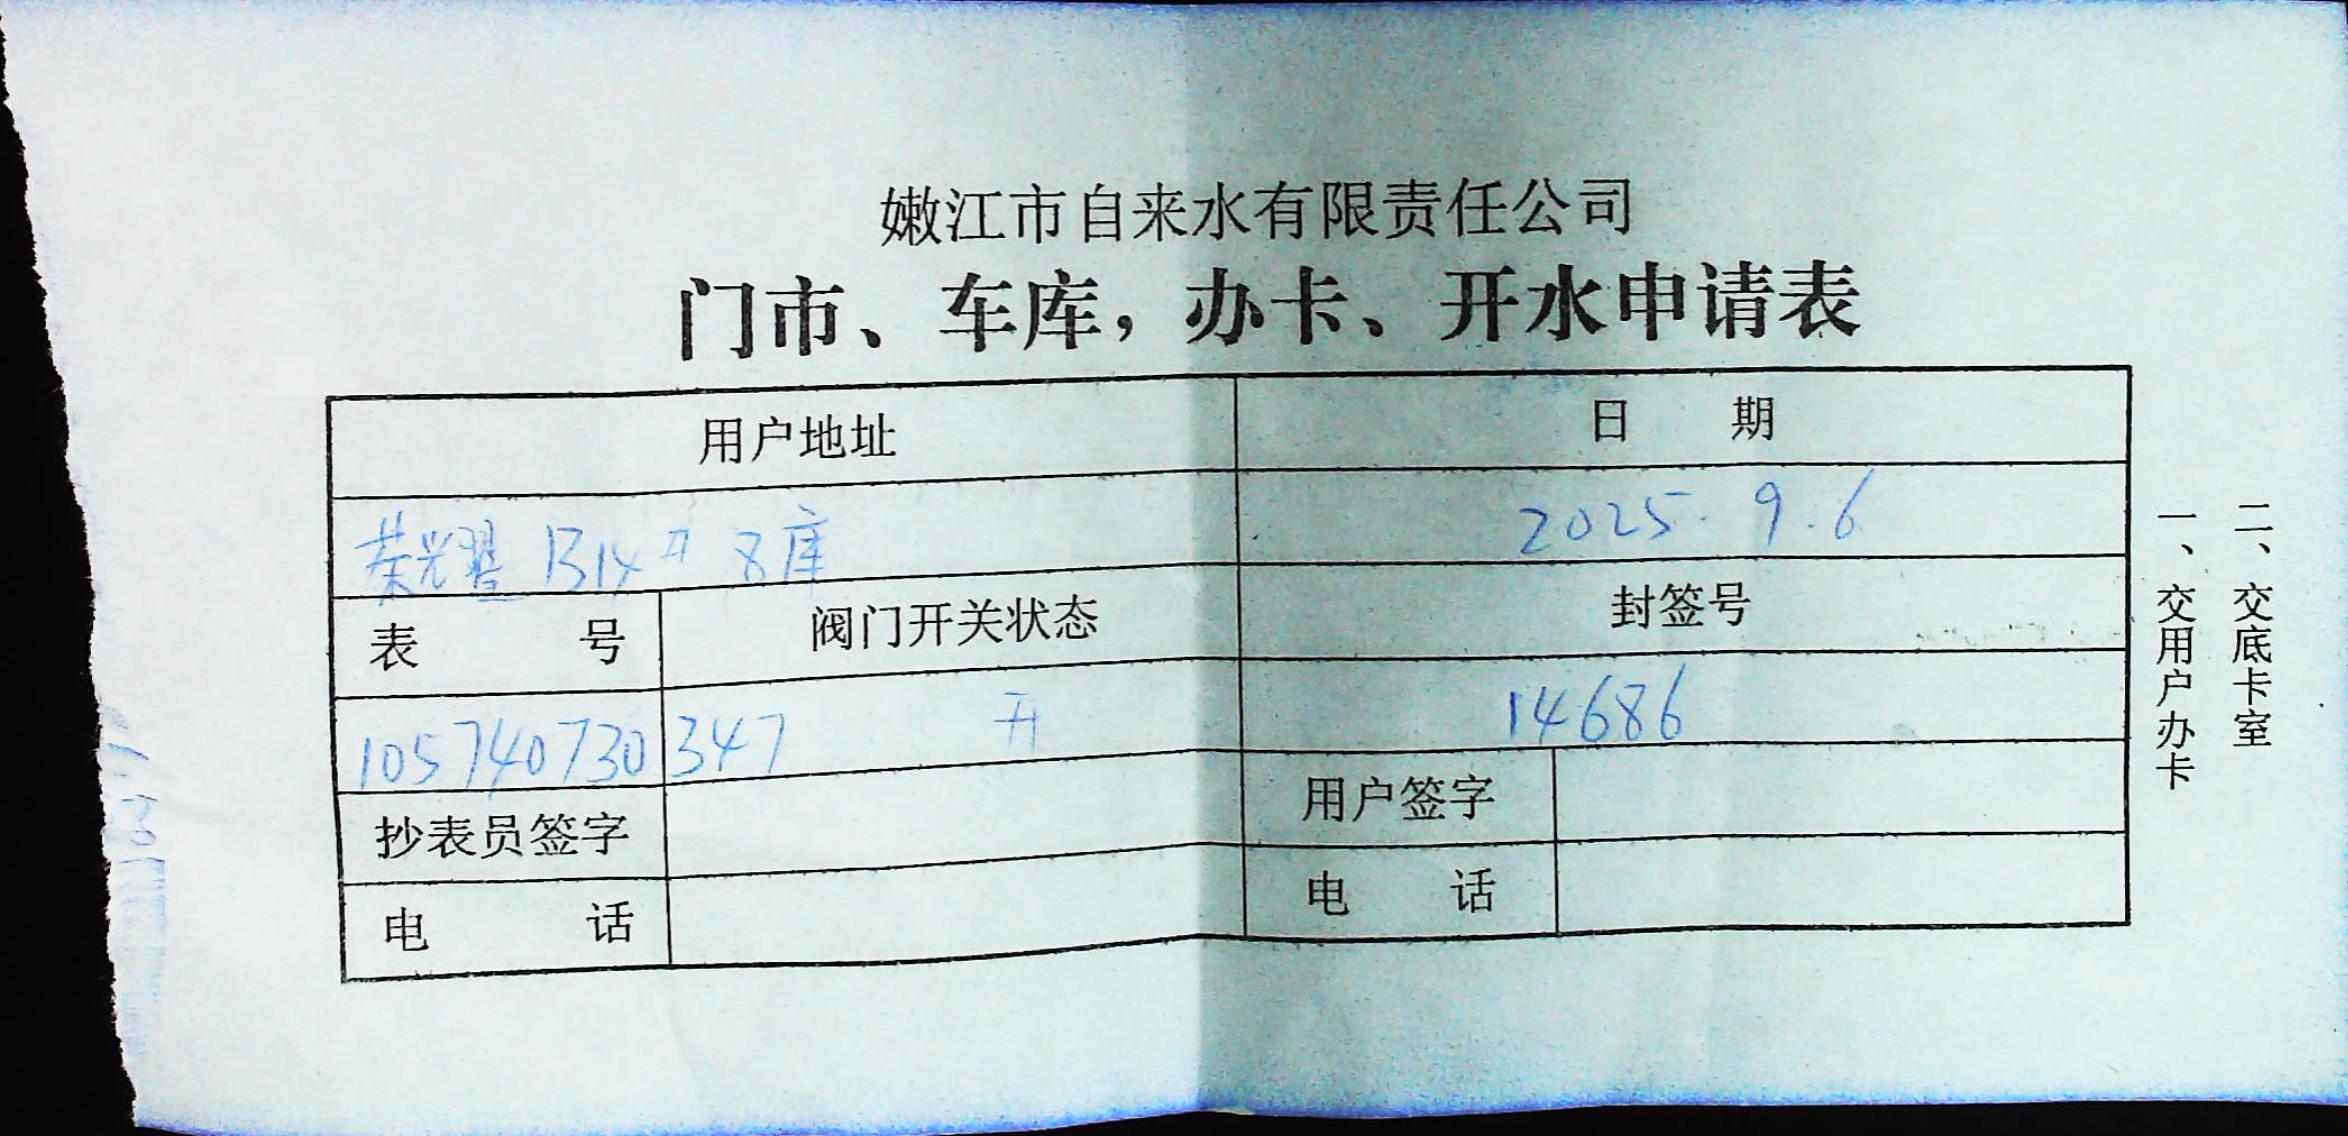 嫩江市自来水有限责任公司
门市、车库，办卡、开水申请表
用户地址 日 期
荣光 B14# 8库 2025.9.6
表 号 阀门开关状态 封签号
105740730347 开 14686
抄表员签字 用户签字
电 话 电 话
一、交用户办卡
二、交底卡室